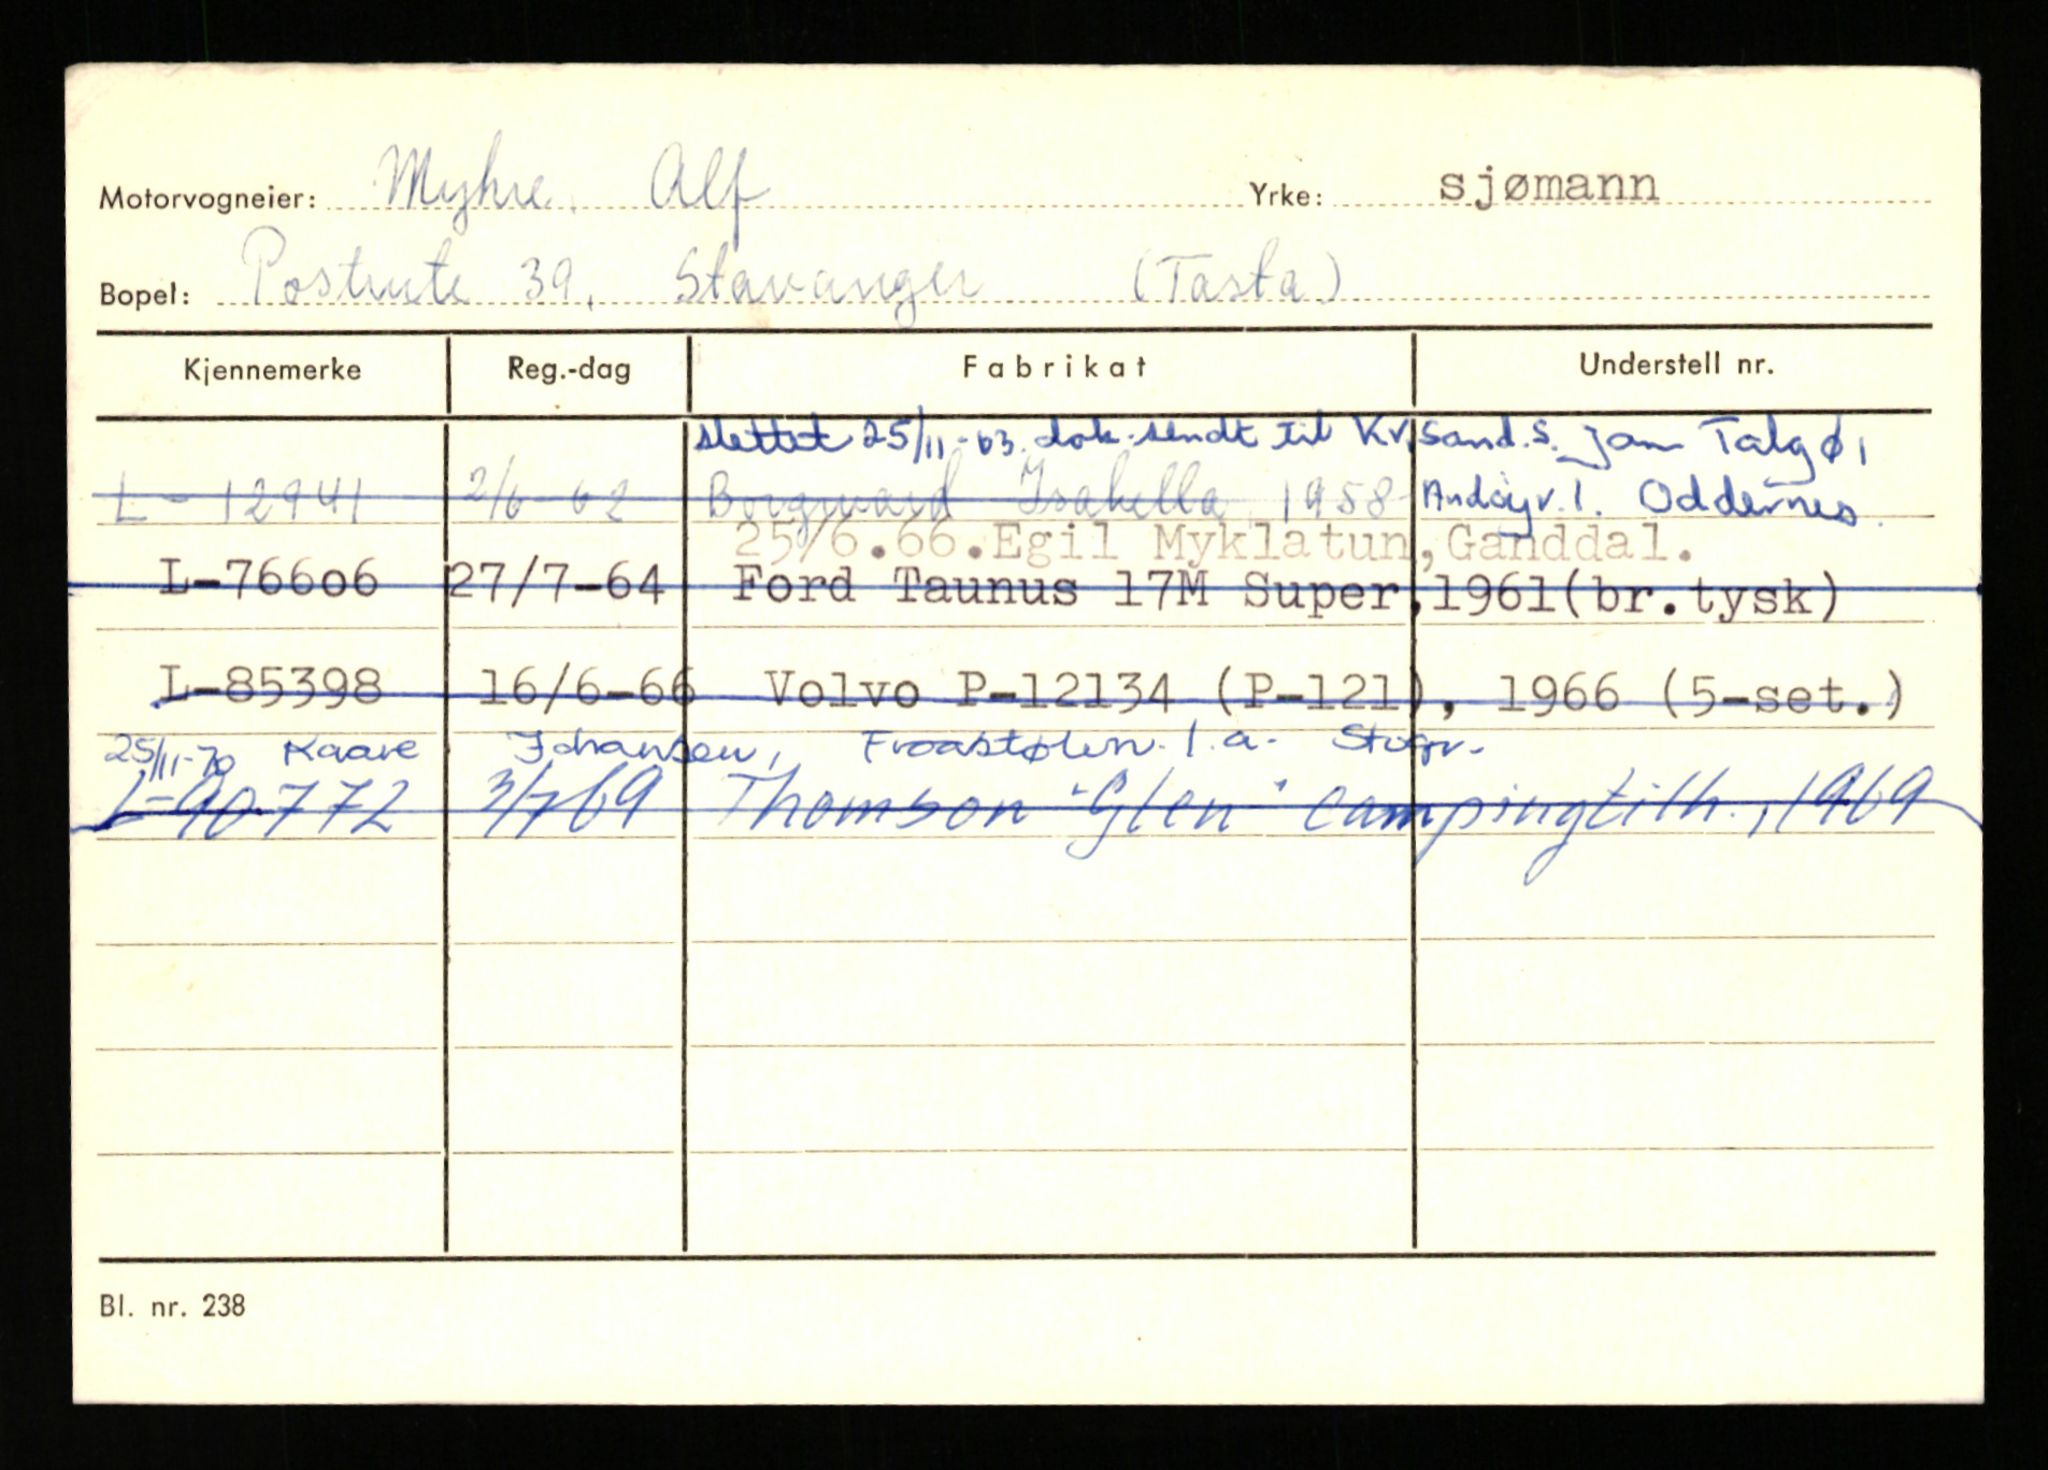 Motorvogneier: Myhre, Alf Yrke: sjømann
Bopel: Postrute 39, Stavanger (Tasta)
Kjennemerke Reg.-dag Fabrikat Understell nr.
slettet 25/11-63. dok. sendt til Kr.sand.S. Jan Talgø,
L-12941 2/6-62 Borgward Isabella 1958 Andøyv.1. Oddernes.
25/6.66.Egil Myklatun,Ganddal.
L-76606 27/7-64 Ford Taunus 17M Super,1961(br.tysk)
L-85398 16/6-66 Volvo P-12134 (P-121), 1966 (5-set.)
25/11-70 Kaare Johansen, Froastølen 1.a. Stvgr.
L-90772 3/7 69 Thomson "Glen" campingtilh., 1969
Bl. nr. 238